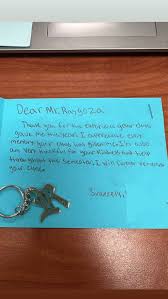 Dear Mr. Raygoza
Thank you for the experience your class
gave me this year. I appreciate every
memory your class has given me. I'm also
am very thankful for your kindness and help
throughout the semester. I will forever remember
your class.
Sincerely,